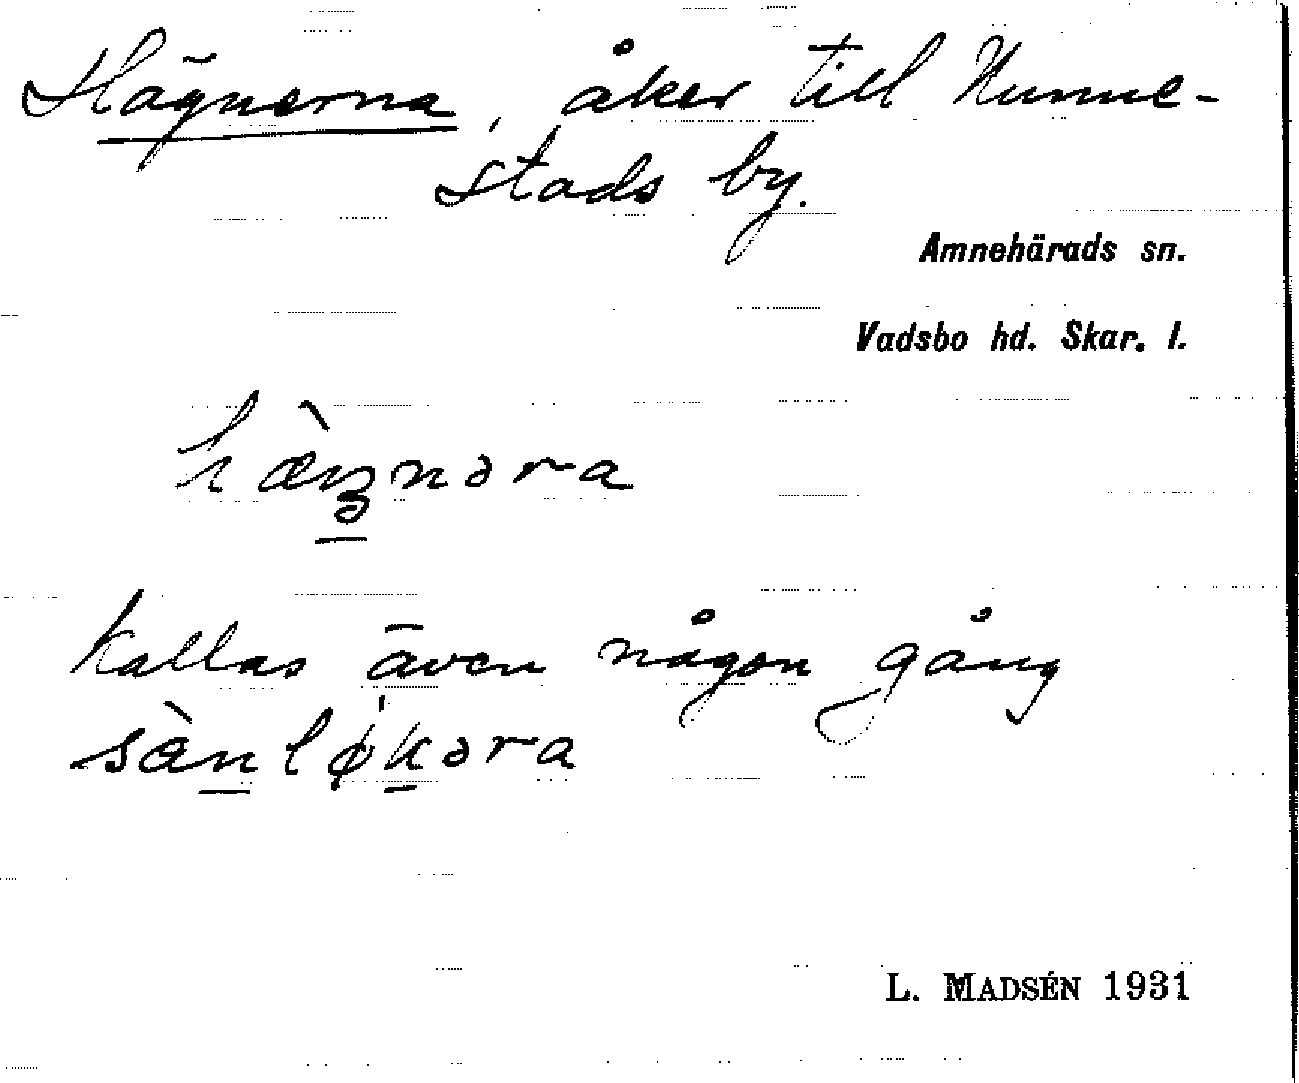 Hägnerna, åker till Nunne-
stads by.
Amnehärads sn.
Vadsbo hd. Skar. l.
hæ̀ŋnəra
kallas även någon gång
sæ̀nløkəra
L. MADSÉN 1931